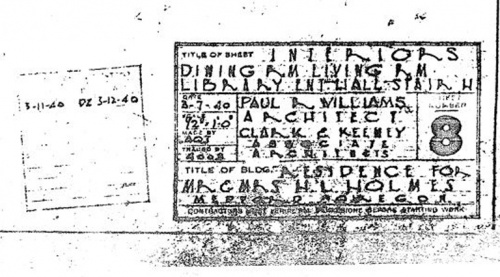 TITLE OF SHEET INTERIORS
DINING RM LIVING RM
LIBRARY ENT HALL-STAIR H
3-11-40 DE 3-12-40
DATE
8-7-40
PAUL R WILLIAMS
ARCHITECT
CLARK & KEENEY
ASSOCIATE
ARCHITECTS
MADE BY
TRACED BY
SHEET
NUMBER
8
TITLE OF BLDG. RESIDENCE FOR
MR & MRS H L HOLMES
MEDFORD OREGON
CONTRACTORS MUST VERIFY ALL DIMENSIONS BEFORE STARTING WORK